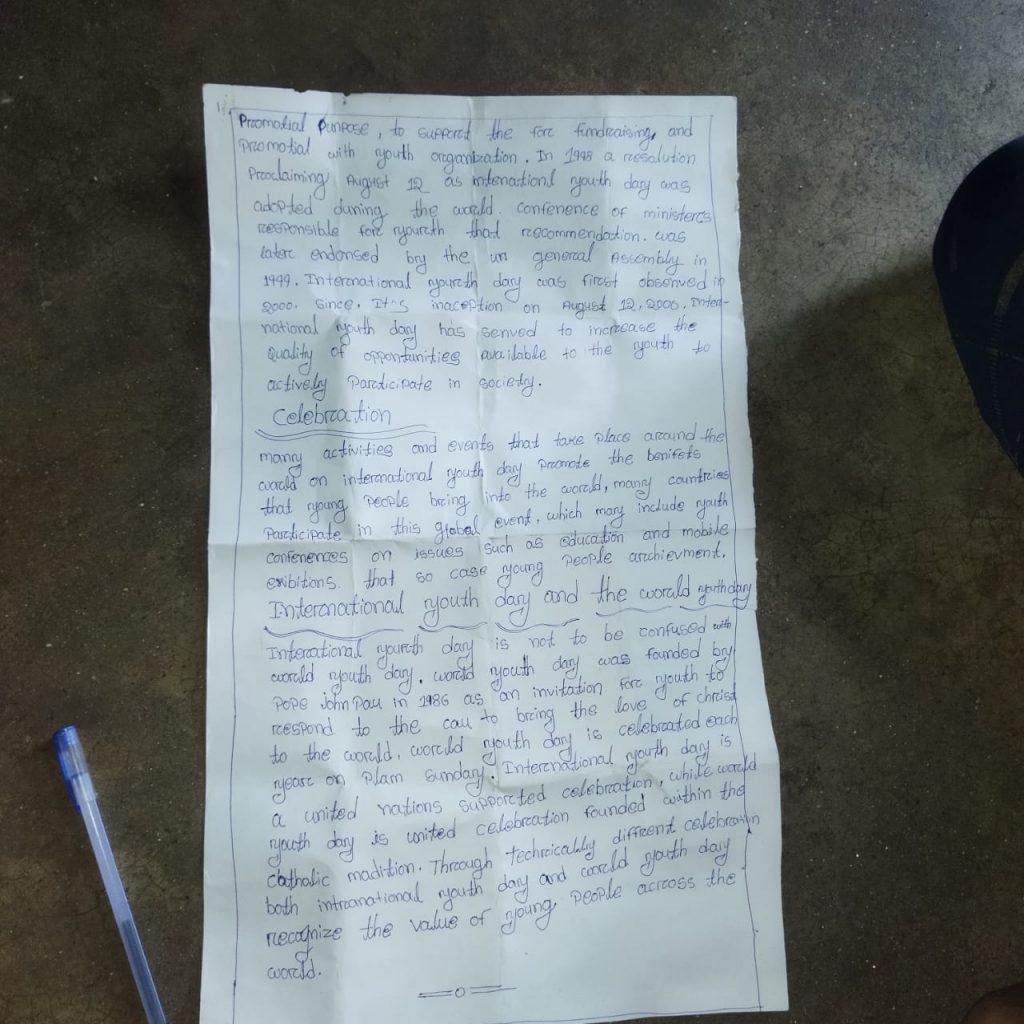 Promotial Purpose, to support the forc fundraising, and
Promotial with youth organization. In 1998 a resolution
Proclaiming August 12 as intenationl youth day was
adopted duning the world. confenence of ministers
responsible for yourth that recommendation. was
later endonsed by the un general Assembly in
1999. International yourth day was first observed in
2000. Since. It's inaception on August 12, 2000. Inter-
national youth day has senved to increase the
Quality of oppontunities available to the youth to
actively Participate in society.
Celebration
many activities and events that take Place around the
world on international youth day Promote the benifets
that young People bring into the world, many countries
Participate in this global event, which may include youth
confenences on issues such as education and mobile
exibitions. that so case young People archievment.
International youth day and the world youth day
International yourth day is not to be confused with
world youth day. world youth day was founded by
Pope John Pau in 1986 as an invitation for youth to
respond to the cau to bring the love of christ
to the world. world youth day is celebrated each
year on Plam Sunday. International youth day is
a united nations supported celebration, while world
youth day is united celebration founded within the
Catholic madition. Through techricably different celebration
both intranational youth day and world youth day
recognize the value of young People across the
world.